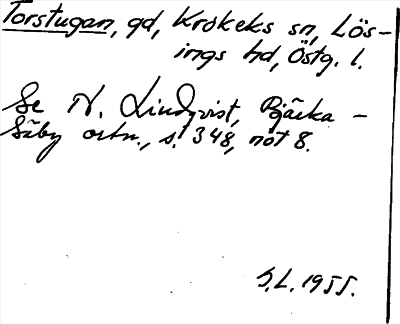 Torstugan, gd, Krokeks sn, Lös-
ings hd, Östg. l.
Se N. Lindqvist, Bjärka -
Säby ortn., s. 348, not 8.
S.L. 1955.